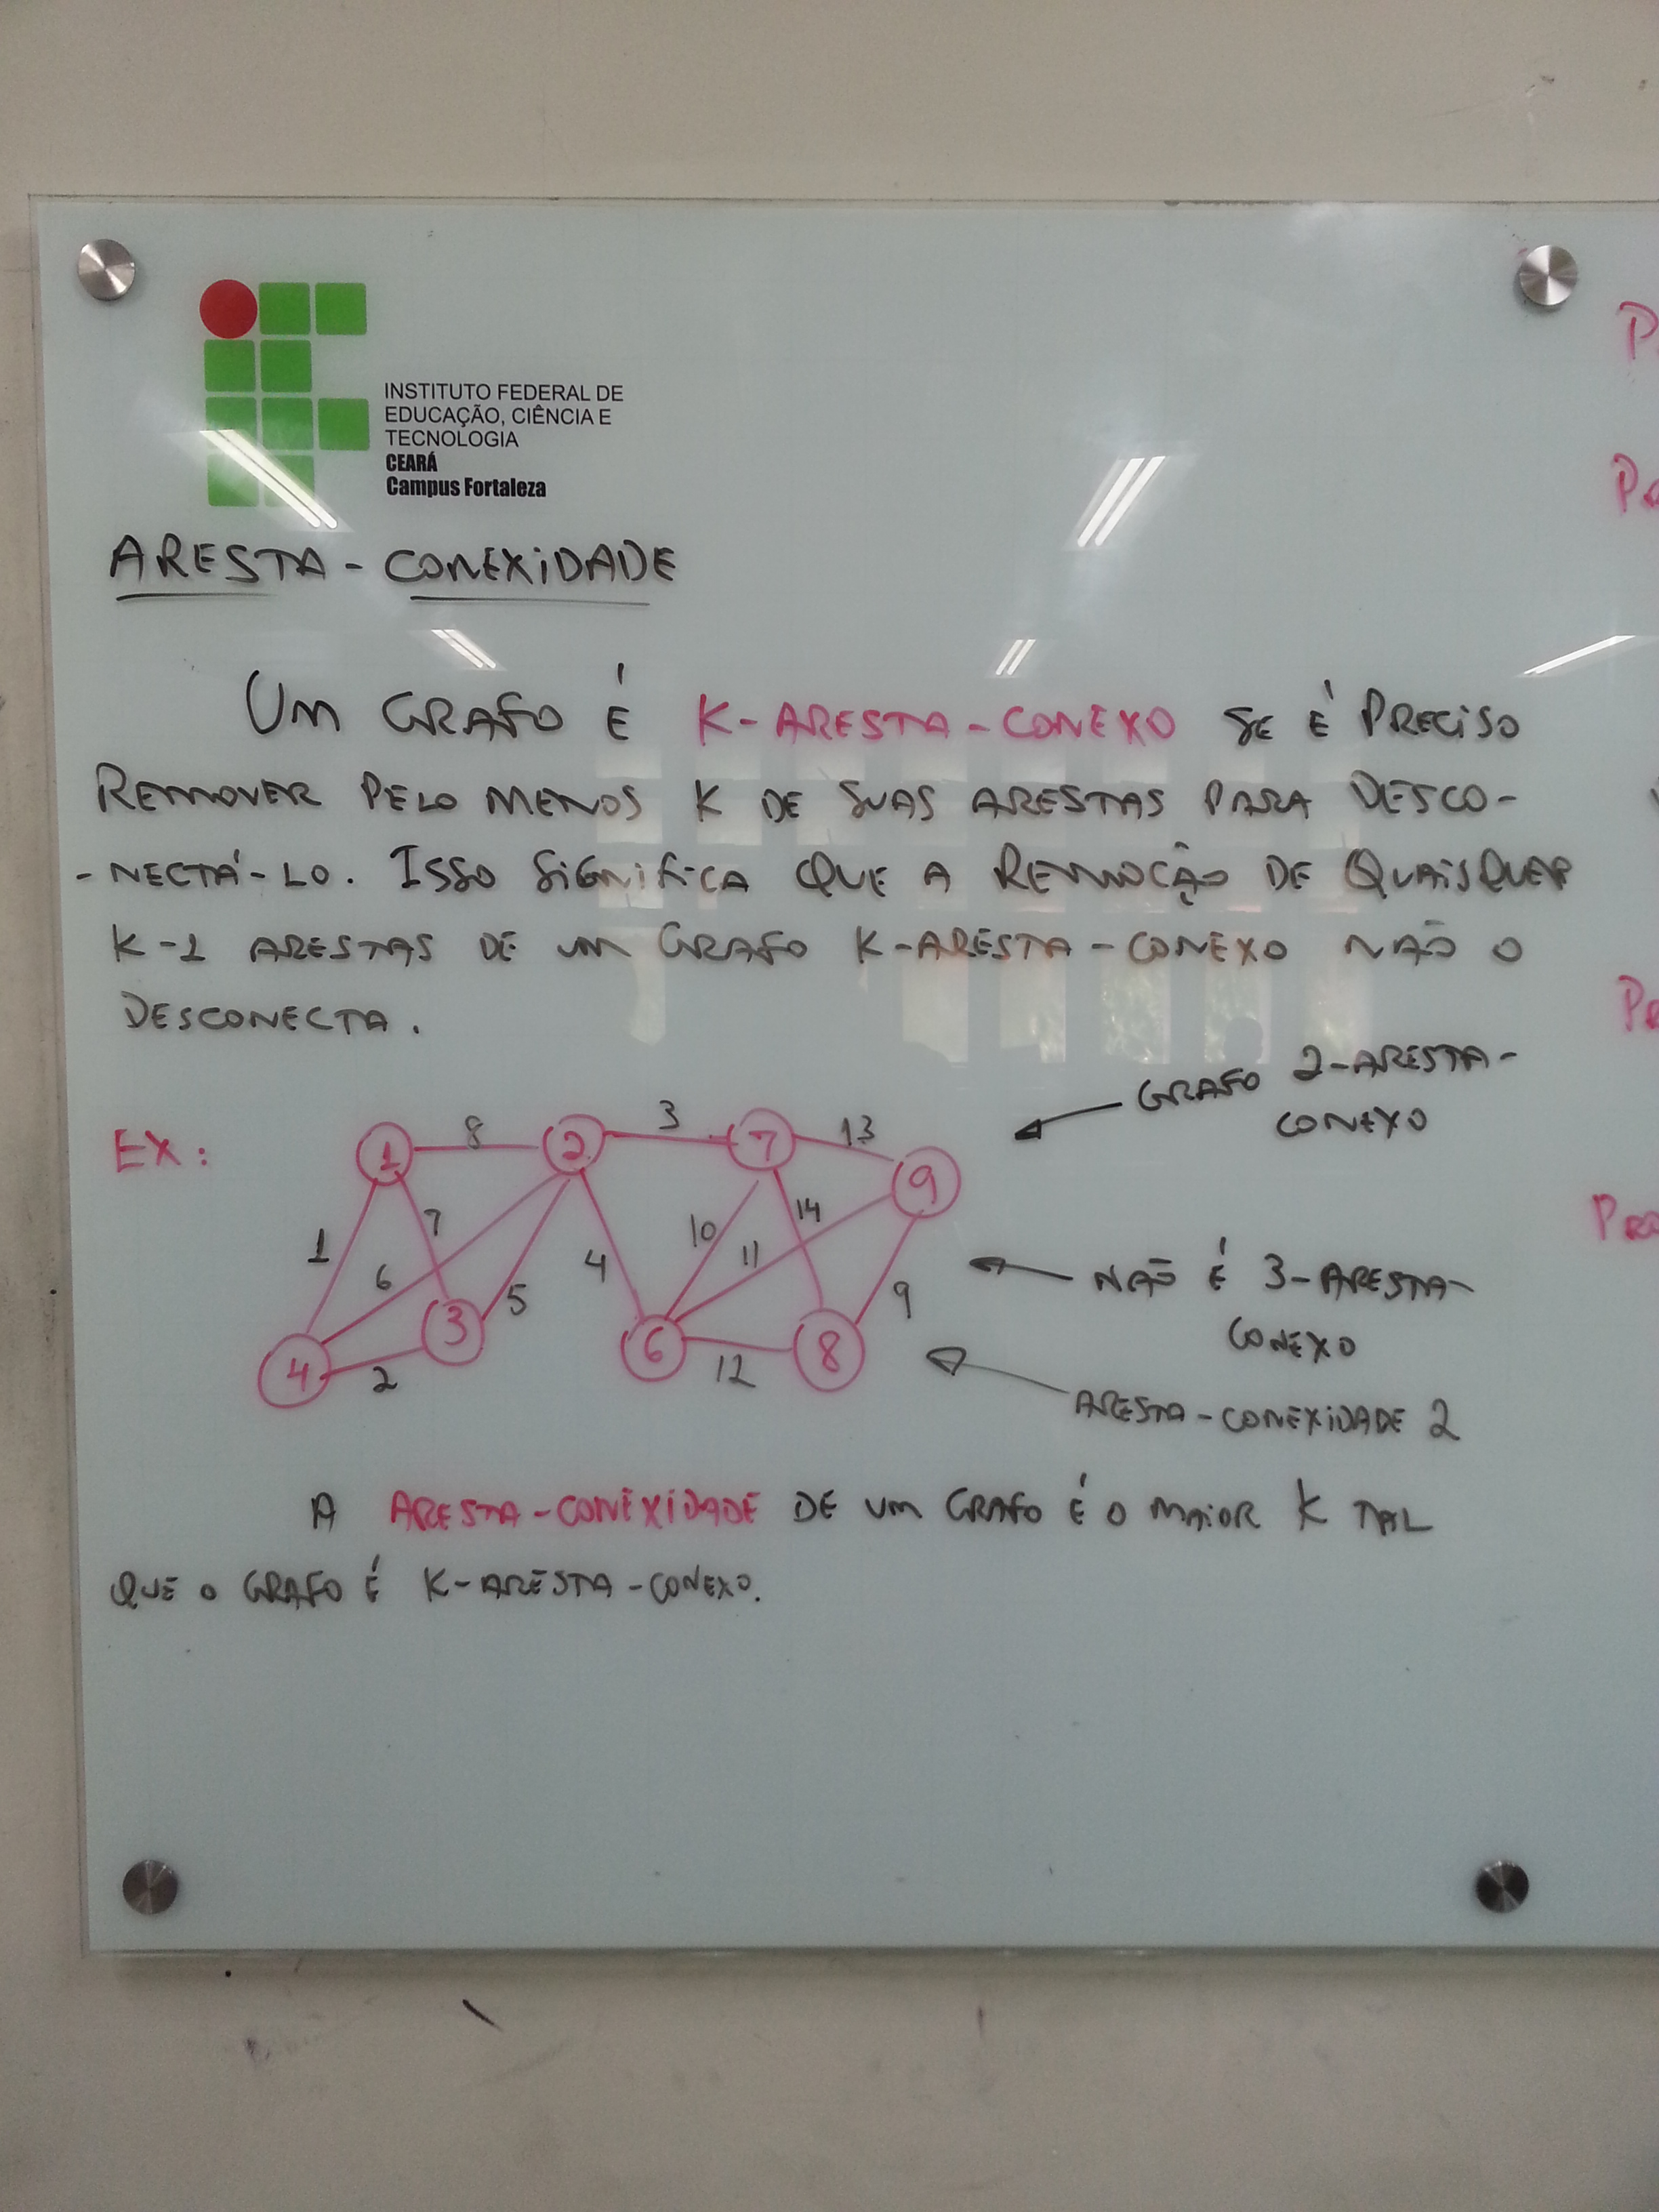 INSTITUTO FEDERAL DE
EDUCAÇÃO, CIÊNCIA E
TECNOLOGIA
CEARÁ
Campus Fortaleza
ARESTA-CONEXIDADE
UM GRAFO É K-ARESTA-CONEXO SE É PRECISO
REMOVER PELO MENOS K DE SUAS ARESTAS PARA DESCO-
-NECTÁ-LO. ISSO SIGNIFICA QUE A REMOÇÃO DE QUAISQUER
K-1 ARESTAS DE UM GRAFO K-ARESTA-CONEXO NÃO O
DESCONECTA.
GRAFO 2-ARESTA-
CONEXO
EX:
1 8 2 3 7 13 9
1 7 6 5 4 10 11 14 9
4 2 3 6 12 8
NÃO É 3-ARESTA-
CONEXO
ARESTA-CONEXIDADE 2
A ARESTA-CONEXIDADE DE UM GRAFO É O MAIOR K TAL
QUE O GRAFO É K-ARESTA-CONEXO.